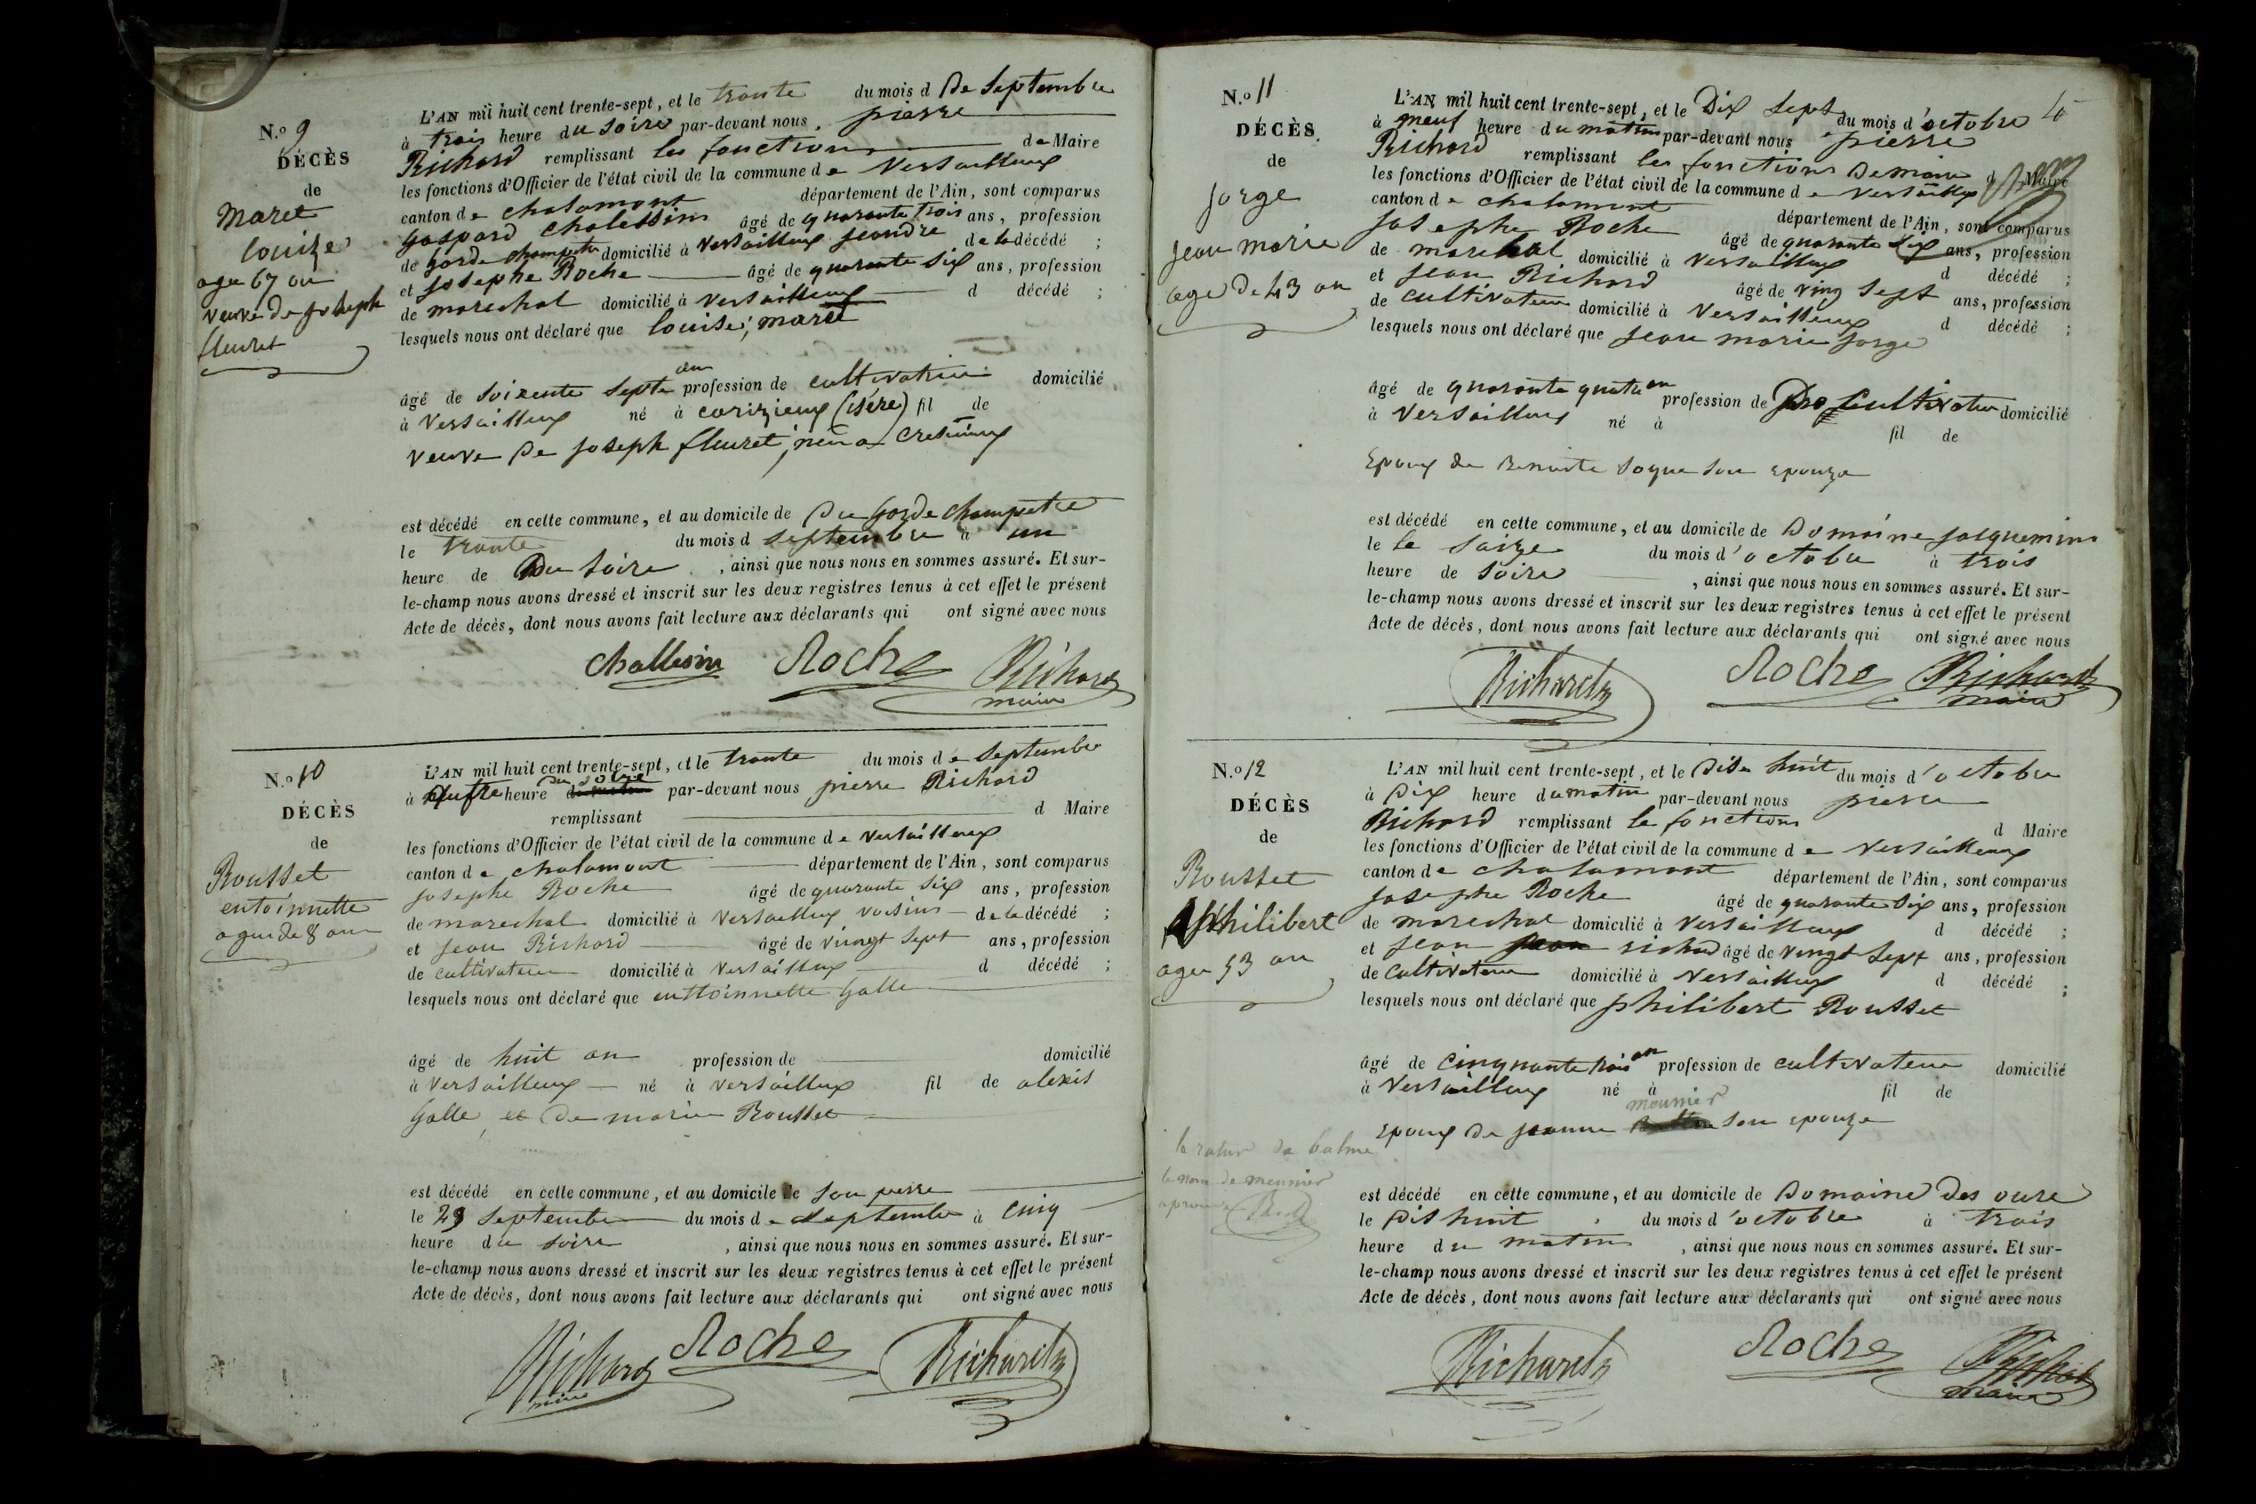 N.o 9
DÉCÈS
de
Maret
louize
agee 67 an
veuve de joseph
fleuret
L'AN mil huit cent trente-sept, et le trante du mois d De Septembre
à trois heure du soire par-devant nous pierre
Richard remplissant les fonctions de Maire
les fonctions d'Officier de l'état civil de la commune de Versailleux
canton de chalamont département de l'Ain, sont comparus
gaspard chalessin âgé de quarante trois ans, profession
de garde champetre domicilié à Versailleux jeandre de la décédé ;
et josephe Roche âgé de quarante six ans, profession
de marechal domicilié à Versailleux d décédé ;
lesquels nous ont déclaré que louise, maret
âgé de soixente septe an profession de cultivatrice domicilié
à Versailleux né à corizieux (isère) fil de
veuve De joseph fleuret, née a cresieux
est décédé en cette commune, et au domicile de Du garde champetre
le trante du mois d septembre à un
heure de Du soire, ainsi que nous nous en sommes assuré. Et sur-
le-champ nous avons dressé et inscrit sur les deux registres tenus à cet effet le présent
Acte de décès, dont nous avons fait lecture aux déclarants qui ont signé avec nous
Challesin Roche Richard
maire
N.o 10
DÉCÈS
de
Rousset
entoinnette
agee de 8 an
L'AN mil huit cent trente-sept, et le trante du mois de septembre
à heure du soire par-devant nous pierre Richard
remplissant d Maire
les fonctions d'Officier de l'état civil de la commune de Versailleux
canton de chalamont département de l'Ain, sont comparus
josephe Roche âgé de quarante six ans, profession
de marechal domicilié à Versailleux voisins de la décédé ;
et jean Richard âgé de vingt sept ans, profession
de cultivateur domicilié à Versailleux d décédé ;
lesquels nous ont déclaré que enttoinnette galle
âgé de huit an profession de domicilié
à Versailleux né à Versailleux fil de alexis
galle, et De marie Rousset
est décédé en cette commune, et au domicile de son perre
le 29 septembre du mois de septembre à cinq
heure du soire, ainsi que nous nous en sommes assuré. Et sur-
le-champ nous avons dressé et inscrit sur les deux registres tenus à cet effet le présent
Acte de décès, dont nous avons fait lecture aux déclarants qui ont signé avec nous
Richard Roche Richard
maire
N.o 11
DÉCÈS
de
jorge
jean marie
age De 43 an
L'AN mil huit cent trente-sept, et le Dix sept du mois d'octobre
à neuf heure du matin par-devant nous pierre
Richard remplissant les fonctions De maire d Maire
les fonctions d'Officier de l'état civil de la commune de Versailleux
canton de chalamont département de l'Ain, sont comparus
josephe Roche âgé de quarante six ans, profession
de marechal domicilié à Versailleux d décédé ;
et jean Richard âgé de ving sept ans, profession
de cultivateur domicilié à Versailleux d décédé ;
lesquels nous ont déclaré que jean marie jorge
âgé de quarante quatre an profession de cultivateur domicilié
à Versailleux né à fil de
Epoux de Benoite son epouze
est décédé en cette commune, et au domicile de Domaine jacquemin
le le saize du mois d'octobre à trois
heure de soire, ainsi que nous nous en sommes assuré. Et sur-
le-champ nous avons dressé et inscrit sur les deux registres tenus à cet effet le présent
Acte de décès, dont nous avons fait lecture aux déclarants qui ont signé avec nous
Richard Roche Richard
maire
N.o 12
DÉCÈS
de
Rousset
philibert
agee 53 an
L'AN mil huit cent trente-sept, et le Dise huit du mois d'octobre
à Dix heure du matin par-devant nous pierre
Richard remplissant le fonctions d Maire
les fonctions d'Officier de l'état civil de la commune de Versailleux
canton de chalamont département de l'Ain, sont comparus
josephe Roche âgé de quarante six ans, profession
de marechal domicilié à Versailleux d décédé ;
et jean richard âgé de vingt sept ans, profession
de cultivateur domicilié à Versailleux d décédé ;
lesquels nous ont déclaré que philibert Rousset
âgé de cinquante trois an profession de cultivateur domicilié
à Versailleux né à fil de
meunier
Epoux de jeanne son epouze
la ratur de balme
le nom de meunier
aprouve
est décédé en cette commune, et au domicile de Domaine Des oure
le Dis huit du mois d'octobre à trois
heure du matin, ainsi que nous nous en sommes assuré. Et sur-
le-champ nous avons dressé et inscrit sur les deux registres tenus à cet effet le présent
Acte de décès, dont nous avons fait lecture aux déclarants qui ont signé avec nous
Richard Roche Richard
maire